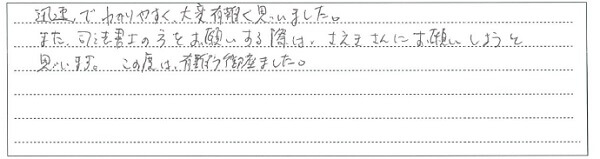 迅速でわかりやすく、大変有難く思いました。
また、司法書士の方をお願いする際は、さえきさんにお願いしようと
思います。この度は、有難う御座ました。